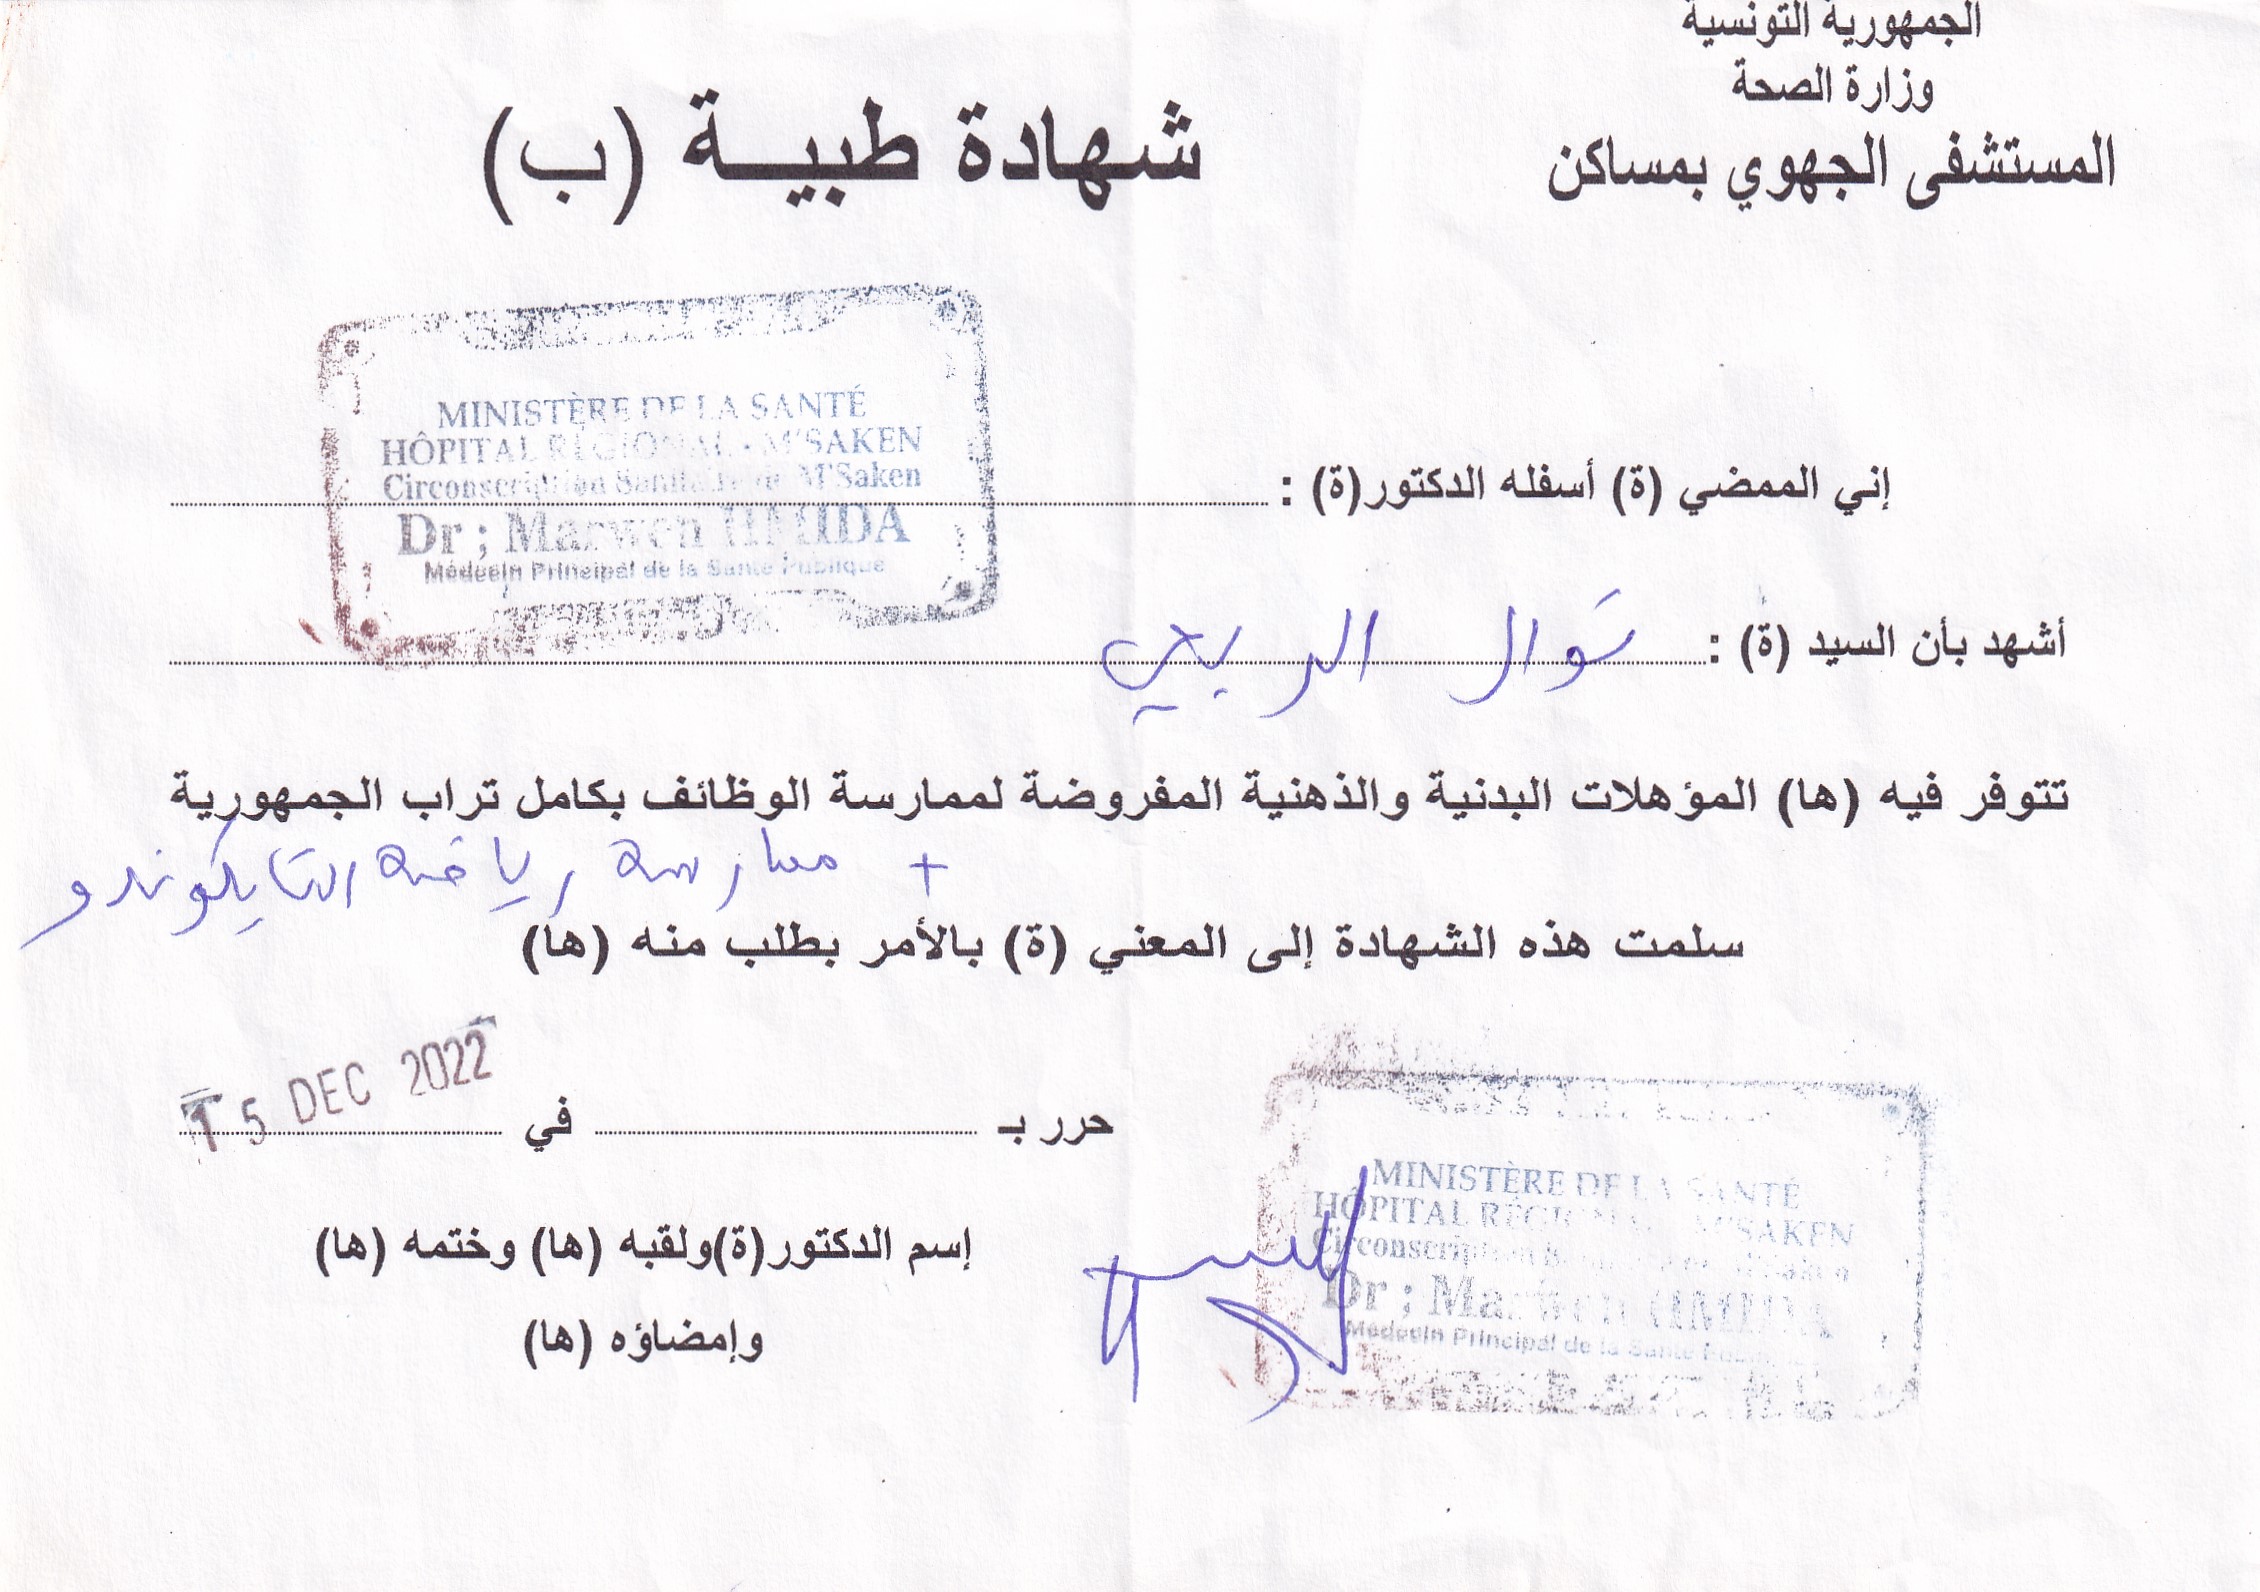 الجمهورية التونسية
وزارة الصحة
المستشفى الجهوي بمساكن
شهادة طبيـــة (ب)
MINISTÈRE DE LA SANTÉ
HÔPITAL RÉGIONAL - M'SAKEN
Circonscription Sanitaire de M'Saken
Dr ; Marwen HMIDA
Médecin Principal de la Santé Publique
إني الممضي (ة) أسفله الدكتور(ة) :
أشهد بأن السيد (ة) :
تتوفر فيه (ها) المؤهلات البدنية والذهنية المفروضة لممارسة الوظائف بكامل تراب الجمهورية
+ ممارسة رياضة التايكوندو
سلمت هذه الشهادة إلى المعني (ة) بالأمر بطلب منه (ها)
حرر بـ في 15 DEC 2022
إسم الدكتور(ة)ولقبه (ها) وختمه (ها)
وإمضاؤه (ها)
MINISTÈRE DE LA SANTÉ
HÔPITAL RÉGIONAL - M'SAKEN
Circonscription Sanitaire de M'Saken
Dr ; Marwen HMIDA
Médecin Principal de la Santé Publique